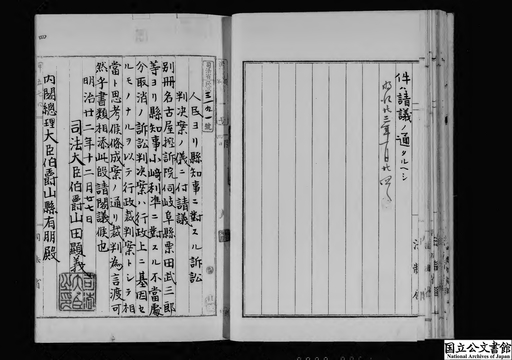 件ハ請議ノ通タルヘシ
明治廿三年一月廿四日
三九一號
人民ヨリ縣知事ニ對スル訴訟
判决案ノ儀ニ付請議
別册名古屋控訴院伺岐阜縣粟田武三郎
等ヨリ縣知事小崎利準ニ對スル不當處
分取消ノ訴訟判决案ハ行政上ニ基因セ
ルモノナルヲ以テ行政裁判案トシテ相
當ト思考候條成案ノ通リ裁判為言渡可
然乎書類相添此段請閣議候也
明治廿二年十二月廿七日
司法大臣伯爵山田顯義
内閣總理大臣伯爵山縣有朋殿
国立公文書館
National Archives of Japan